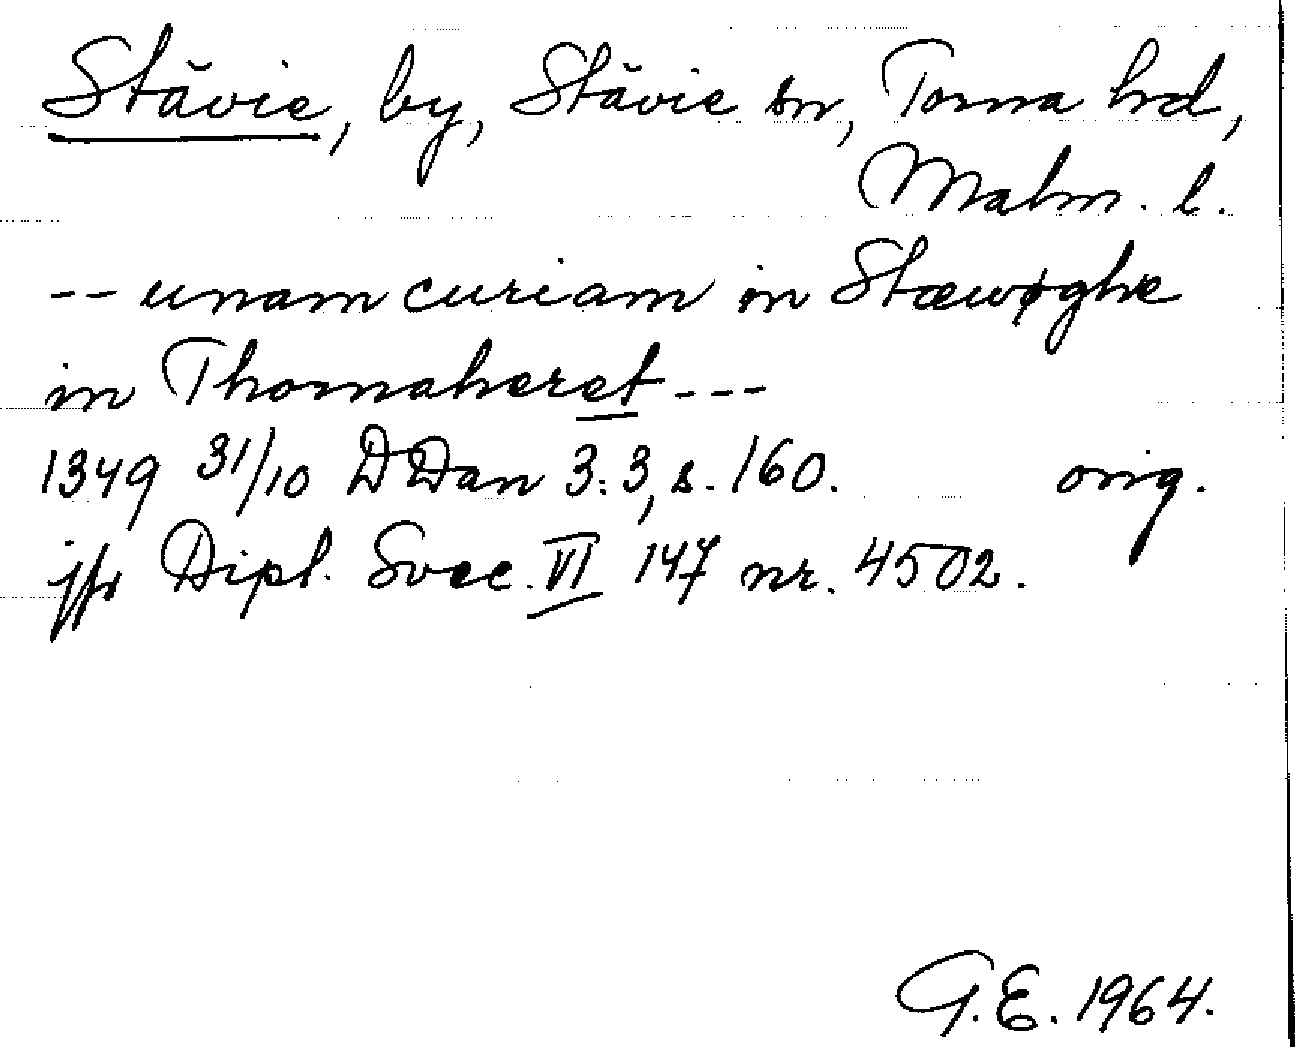 Stävie, by, Stävie sn, Torna hd,
Malm. l.
-- unam curiam in Stæwøghe
in Thornaheret ---
1349 31/10 DDan 3:3, s. 160. orig.
jfr Dipl. Svec. VI 147 nr. 4502.
G.E. 1964.